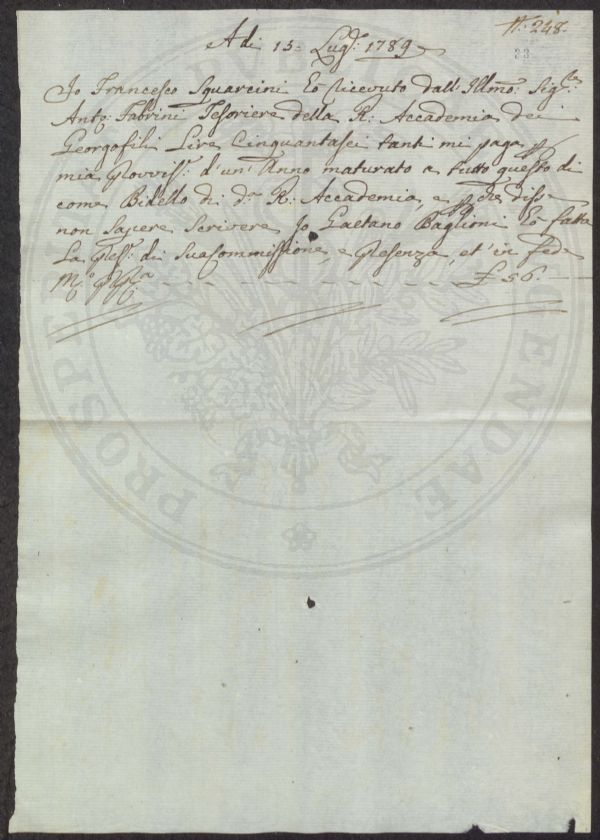 N.° 248.
33
A di 15. Lug.° 1789
Io Francesco Squarcini Ò ricevuto dall' Illmo: Sig.re
Ant.° Fabrini Tesoriere della R: Accademia dei
Georgofili Lire Cinquantasei tanti mi paga p
mia Provvis.e d'un' Anno maturato a tutto questo dì
come Bidello di d.a R: Accademia, e p che disse
non Sapere Scrivere Io Gaetano Baglioni Ò fatta
La Pres.e di Sua Commissione, e Presenza, et' in fede
M.o P.pa £ 56.
PROSPERITATI PUBLICAE AUGENDAE